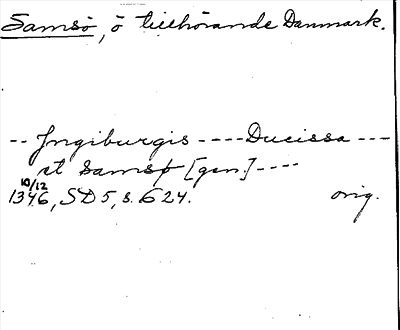 Samsö, ö tillhörande Danmark.
-- Jngiburgis ---- Ducissa ---
et Samsø [gen.] ----
10/12
1346, SD 5, s. 624.
orig.